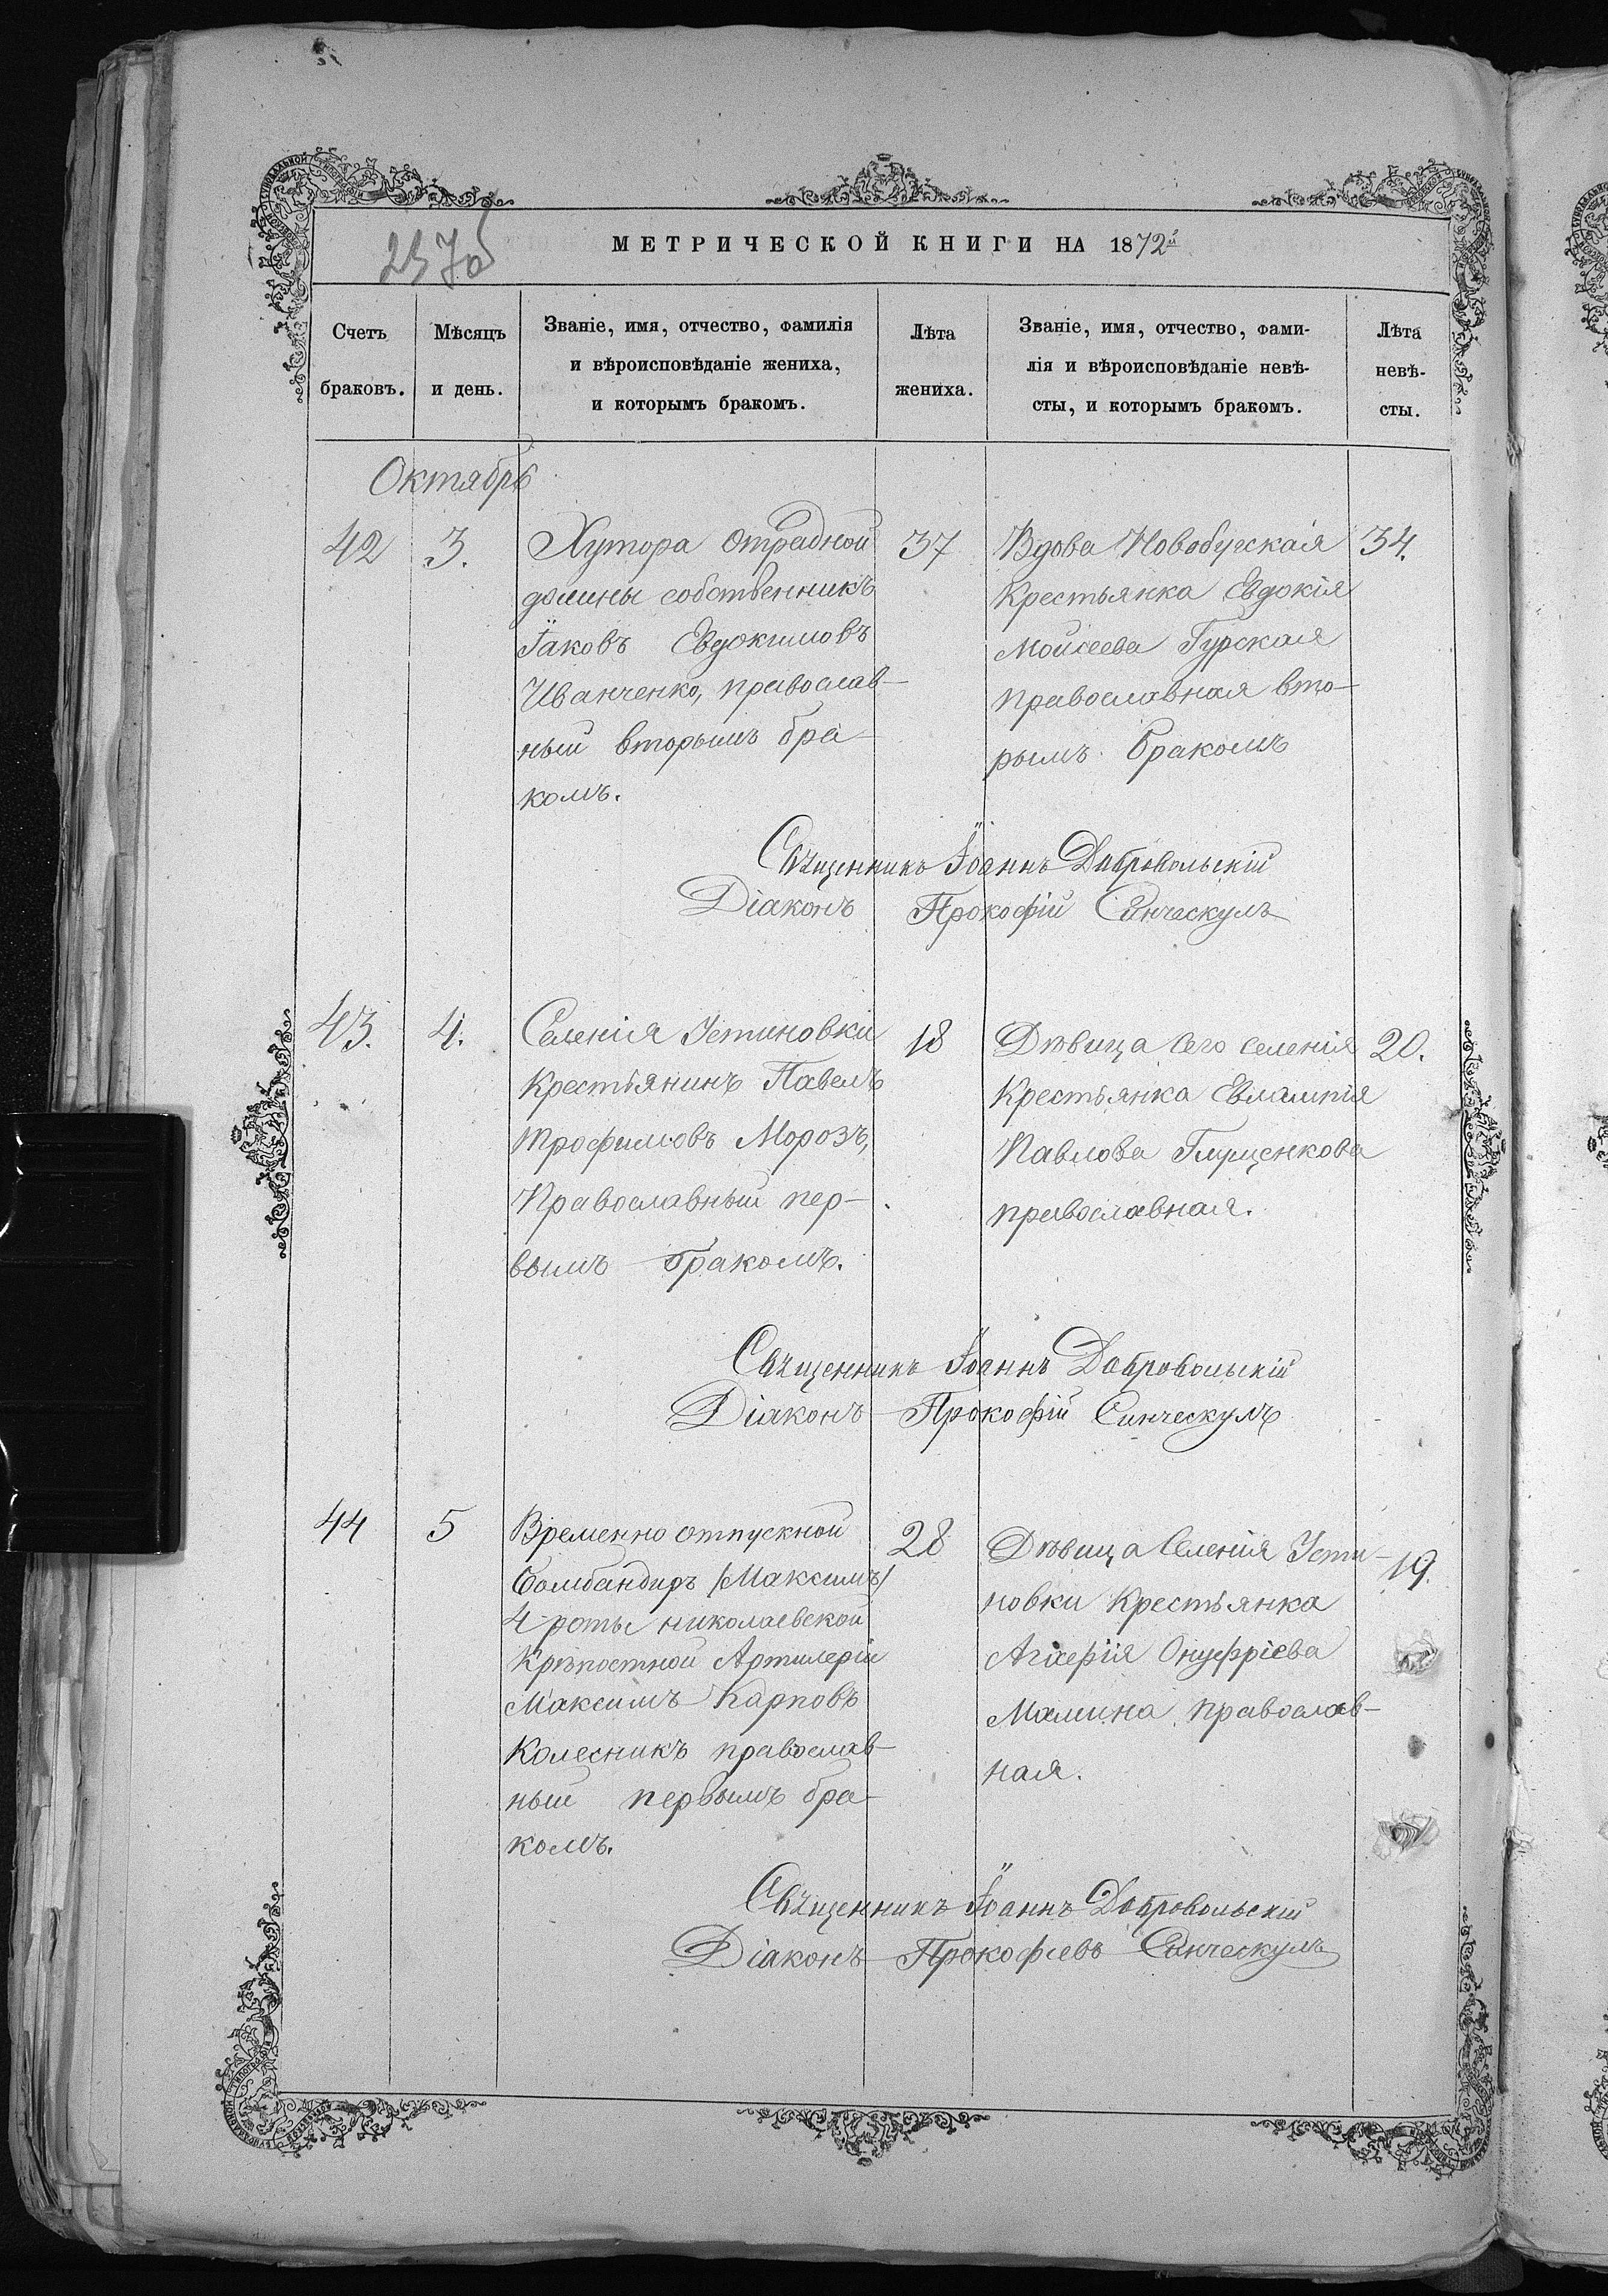 2370
МЕТРИЧЕСКОЙ КНИГИ НА 1872й
Счетъ
браковъ.
Мѣсяцъ
и день.
Званіе, имя, отчество, фамилія
и вѣроисповѣданіе жениха,
и которымъ бракомъ.
Лѣта
жениха.
Званіе, имя, отчество, фами-
лія и вѣроисповѣданіе невѣ-
сты, и которымъ бракомъ.
Лѣта
невѣ-
сты.
Октябрь
42
3.
Хутора Отрадной
долины собственникъ
Іаковъ Евдокимовъ
Иванченко, православ-
ный вторымъ бра-
комъ.
37
Вдова Новобугская
Крестьянка Евдокія
Моисеева Гурская
православная вто-
рымъ бракомъ
34.
Священникъ Іоаннъ Добровольскій
Діаконъ Прокофій Синческулъ
43.
4.
Селенія Устиновки
Крестьянинъ Павелъ
Трофимовъ Морозъ,
Православный пер-
вымъ бракомъ.
18
Дѣвица сего селенія
Крестьянка Евлампія
Павлова Глущенкова
православная.
20.
Священникъ Іоаннъ Добровольскій
Діаконъ Прокофій Синческулъ
44
5
Временно отпускной
Бомбандиръ /Максимъ/
4 роты николаевской
Крѣпостной Артилеріи
Максимъ Карповъ
Колесникъ православ-
ный первымъ бра-
комъ.
28
Дѣвица Селенія Усти-
новки Крестьянка
Агафія Онуфріева
Мамина православ-
ная.
19.
Священникъ Іоаннъ Добровольскій
Діаконъ Прокофіевъ Синческулъ